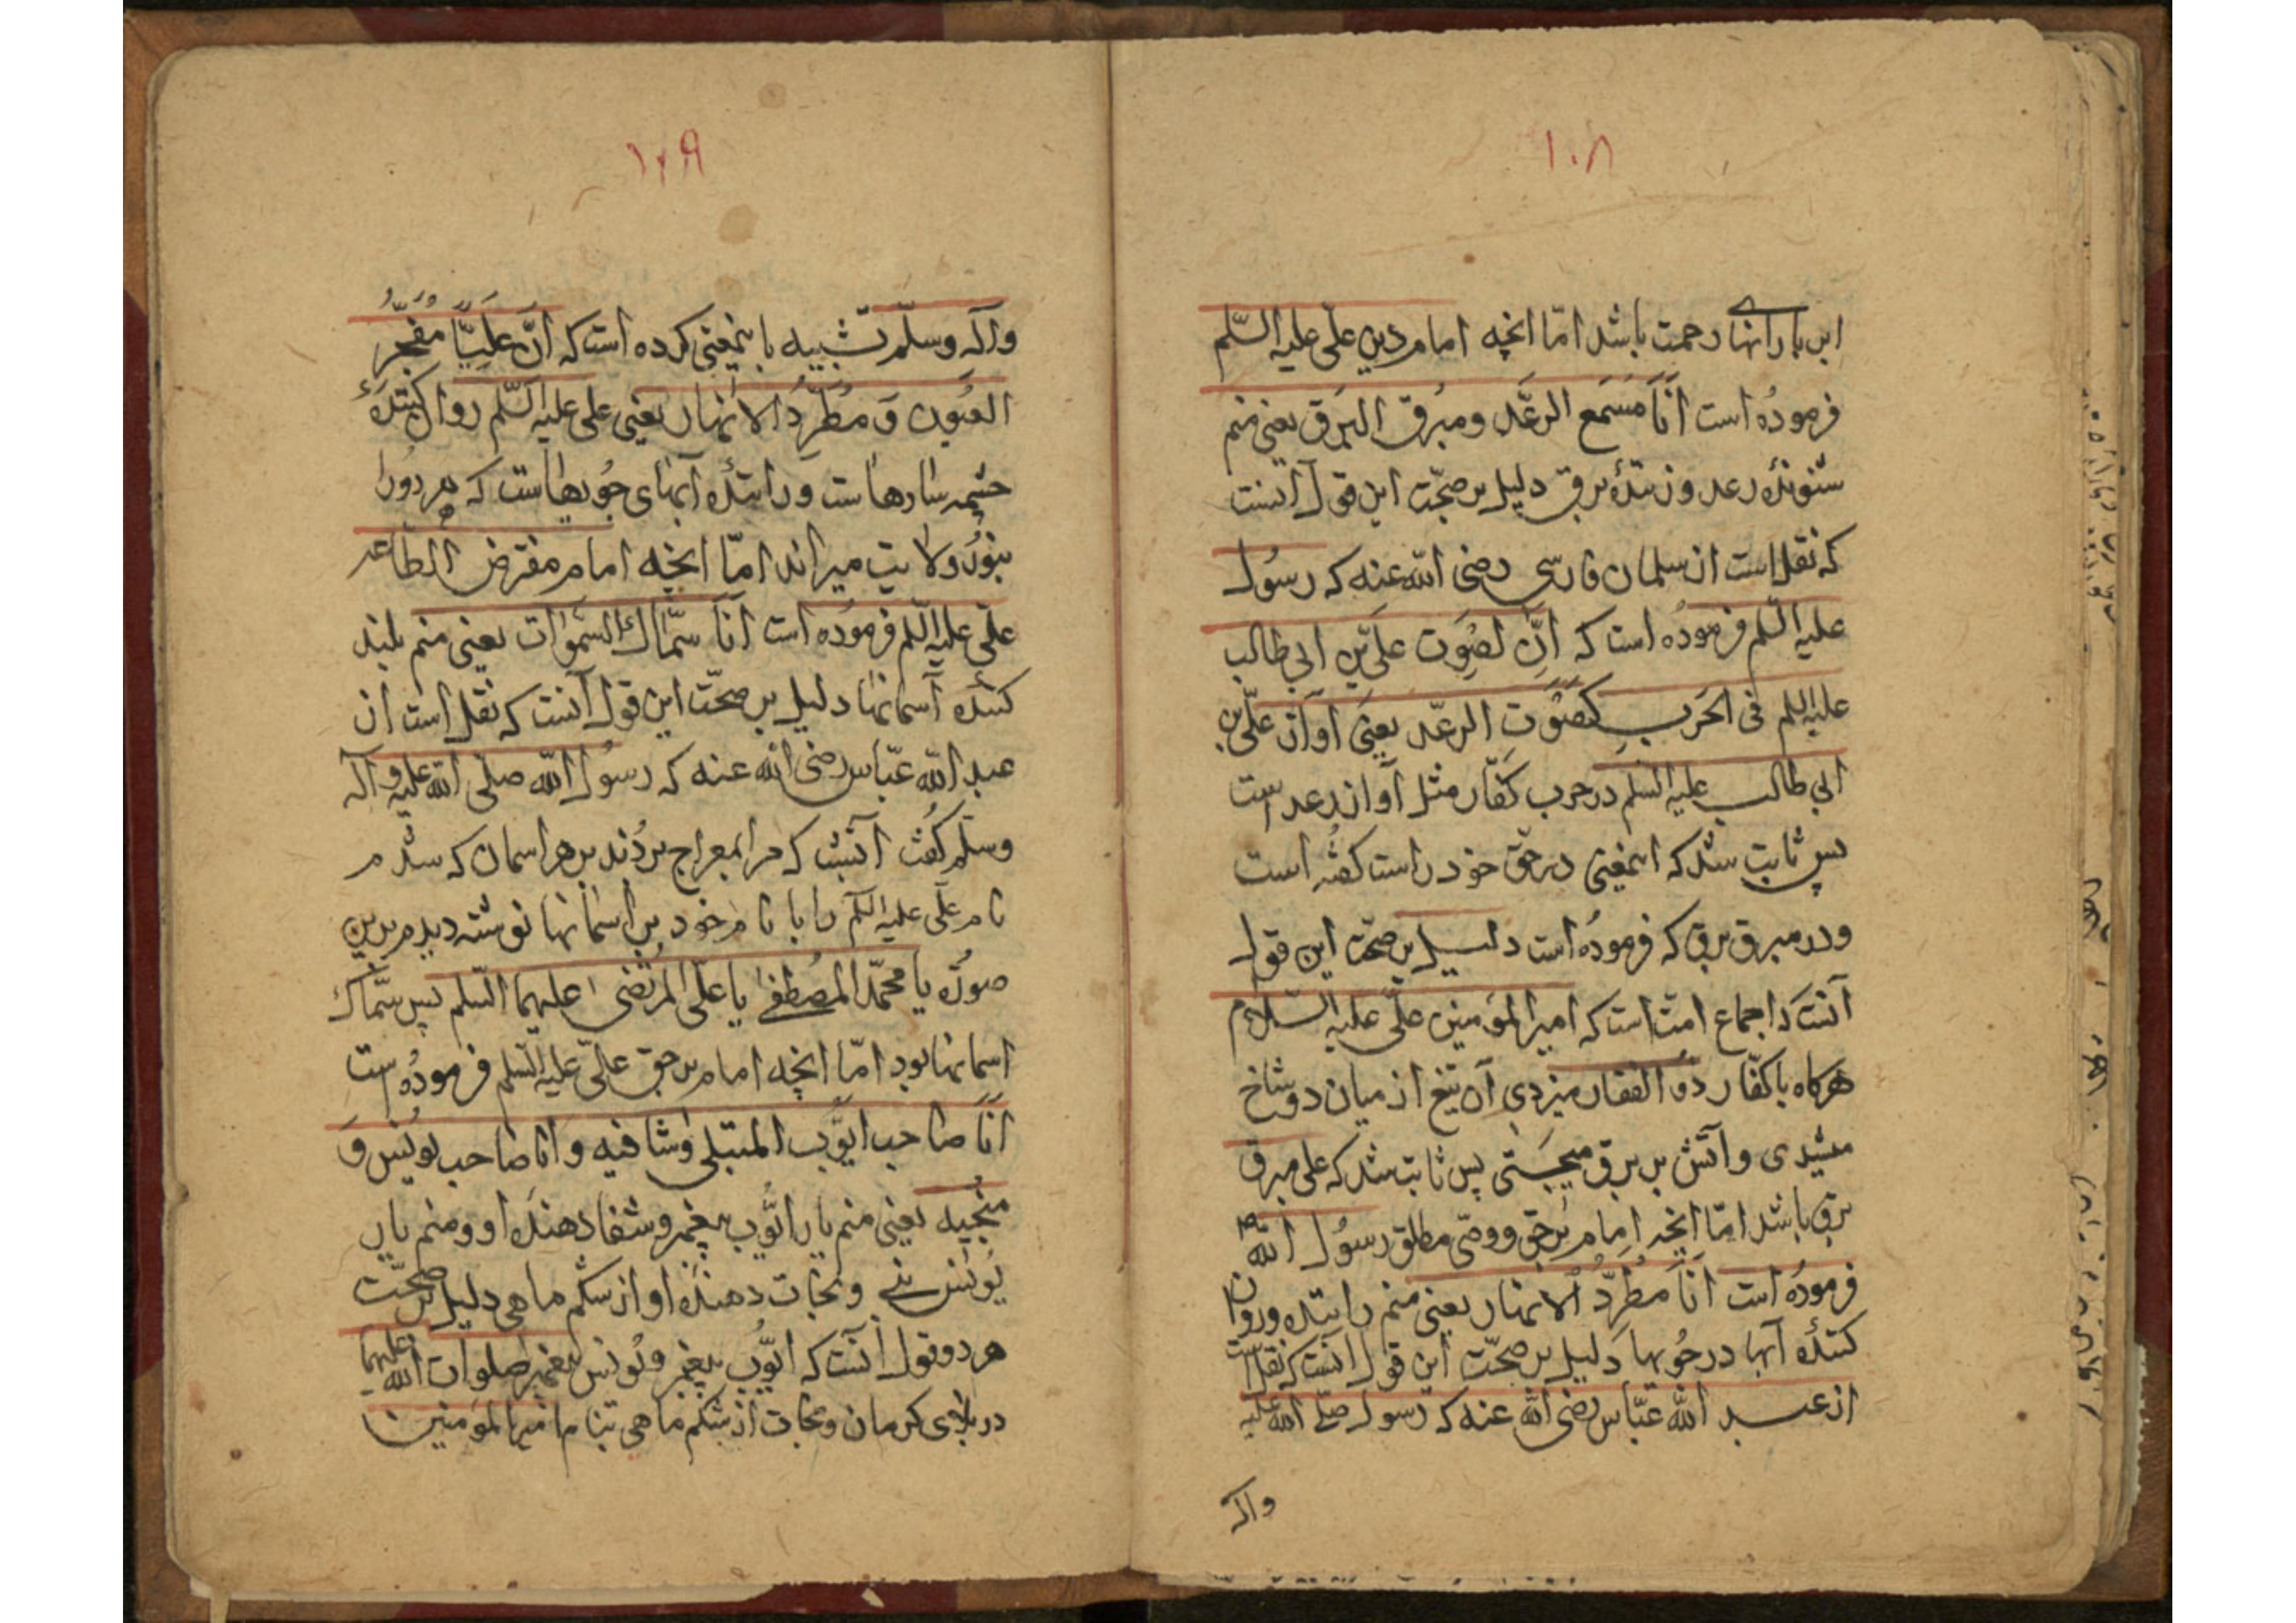 ۱۰۸
این بارانهای رحمت باشد امّا انچه امام دین علّی علیه السّلم
فرموده است اَنَا مُسَمع الرعَّد ومبُرق البَرَق یعنی منم
شنونده رعد وزننده برق دلیل بر صحّت این قول انست
که نقل است از سلمان فارسی رضی اللّه عنه که رسُول
علیه السّلم فرموده است که اِنّ لصَوت علّی بن ابی طالب
علیه السلم فی الحَرب کصَوت الرعّد یعنی اواز علّی بن
ابی طالب علیه السّلم در حرب کفّار مثل آواز رعد است
پس ثابت شد که اینمعنی در حقّ خود راست کفته است
ودر مبرق برق که فرموده است دلیل بر صحّت این قول
آنست که اجماع امّت است که امیر المؤمنین علّی علیه السّلام
هرکاه با کفّار ذو الفقار میزدی آن تیغ از میان دو شاخ
میشدی وآتش بر برق میجَستی پس ثابت شد که علی مبرق
برق باشد امّا انچه امام برحق ووصّی مطلق رسُول اللّه
فرموده است اَنَا مُطرِدُّ الانهار یعنی منم راننده وروان
کننده آبها در جُویها دلیل بر صحّت این قول انست که نقل است
از عبد اللّه عبّاس رضی اللّه عنه که رسول صلّی اللّه علیه
واله
۱۰۹
وآله وسلّم تشبیه باینمعنی کرده است که اِنَّ عَلِیّاً مُفَجِّرُ
العیُون وَ مُطَرِّدُ الانهار یعنی علی علیه السّلم روان کننده
چشمه سارهاست وراننده آبهای جُویهاست که هر دُورا
بنوُر ولایت میراند امّا انچه امام مفترض الطاعه
علّی علیه السّلم فرموُده است اَنَا سمّاك السّموات یعنی منم بلند
کننده آسمانها دلیل بر صحّت این قول آنست که نقل است از
عبد اللّه عبّاس رضی اللّه عنه که رسوُل اللّه صلّی اللّه علیه وآله
وسلّم کفت انشب که مرا بمعراج بردند بر هر اسمان که شدم
نام علّی علیه السّلم را با نام خود بر اسمانها نوشته دیدم بدین
صوره یا محمّد المصُطفی یا علّی المرُتضی علیهما السّلم پس سمّاك
اسمانها بود امّا انچه امام بر حق علّی علیه السّلم فرموده است
اَنَا صاحب ایّوُب المبتلی وشافیه وانا صاحب یوُنس وَ
منجیه یعنی منم یار ایّوُب پیغمبر وشفا دهنده او ومنم یار
یوُنس نبی ونجات دهنده او از شکم ماهی دلیل بر صحّت
هر دو قول آنست که ایّوُب پیغمبر ویوُنس پیغمبر صلوات اللّه علیهما
در بلای کرمان ونجات از شکم ماهی بنام امیر المؤمنین